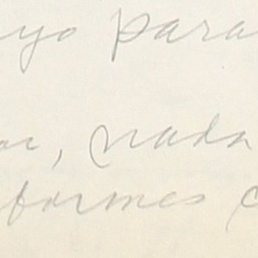 yo para
, nada
formes